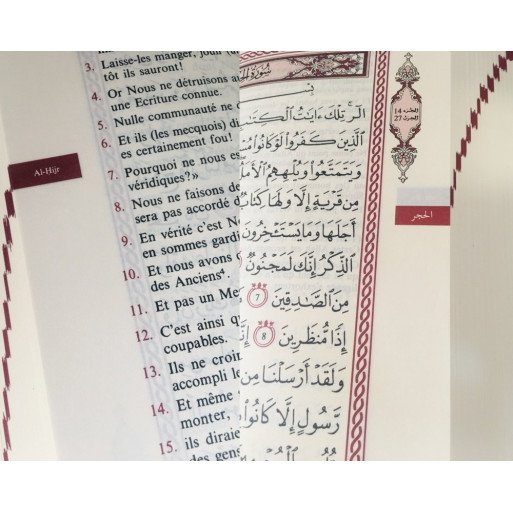 Al-Hijr
3. Laisse-les manger, jouir (d
tôt ils sauront!
4. Or Nous ne détruisons a
une Ecriture connue.
5. Nulle communauté ne
6. Et ils (les mecquois) di
es certainement fou!
7. Pourquoi ne nous es
véridiques?»
8. Nous ne faisons de
sera pas accordé d
9. En vérité c'est N
en sommes gardi
10. Et nous avons
des Anciens⁴.
11. Et pas un Me
12. C'est ainsi q
coupables.
13. Ils ne croi
accompli le
14. Et même
monter,
15. ils diraie
des gens
سُورَةُ الحِ
بِسْـ
الٓر ۚ تِلْكَ ءَايَٰتُ ٱلْكِتَـ
ٱلَّذِينَ كَفَرُوا۟ لَوْ كَانُوا۟ مُسْ
وَيَتَمَتَّعُوا۟ وَيُلْهِهِمُ ٱلْأَمَلُ
مِن قَرْيَةٍ إِلَّا وَلَهَا كِتَابٌ
أَجَلَهَا وَمَا يَسْتَـْٔخِرُونَ
ٱلذِّكْرُ إِنَّكَ لَمَجْنُونٌ
مِنَ ٱلصَّٰدِقِينَ 7
إِذًا مُّنظَرِينَ 8 إِنَّ
وَلَقَدْ أَرْسَلْنَا مِن
رَّسُولٍ إِلَّا كَانُوا۟
الجزء 14
الحزب 27
الحجر